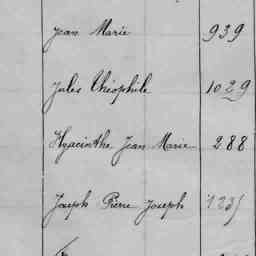 Jean Marie 939
Jules Théophile 1029
Hyacinthe Jean Marie 288
Joseph Pierre Joseph